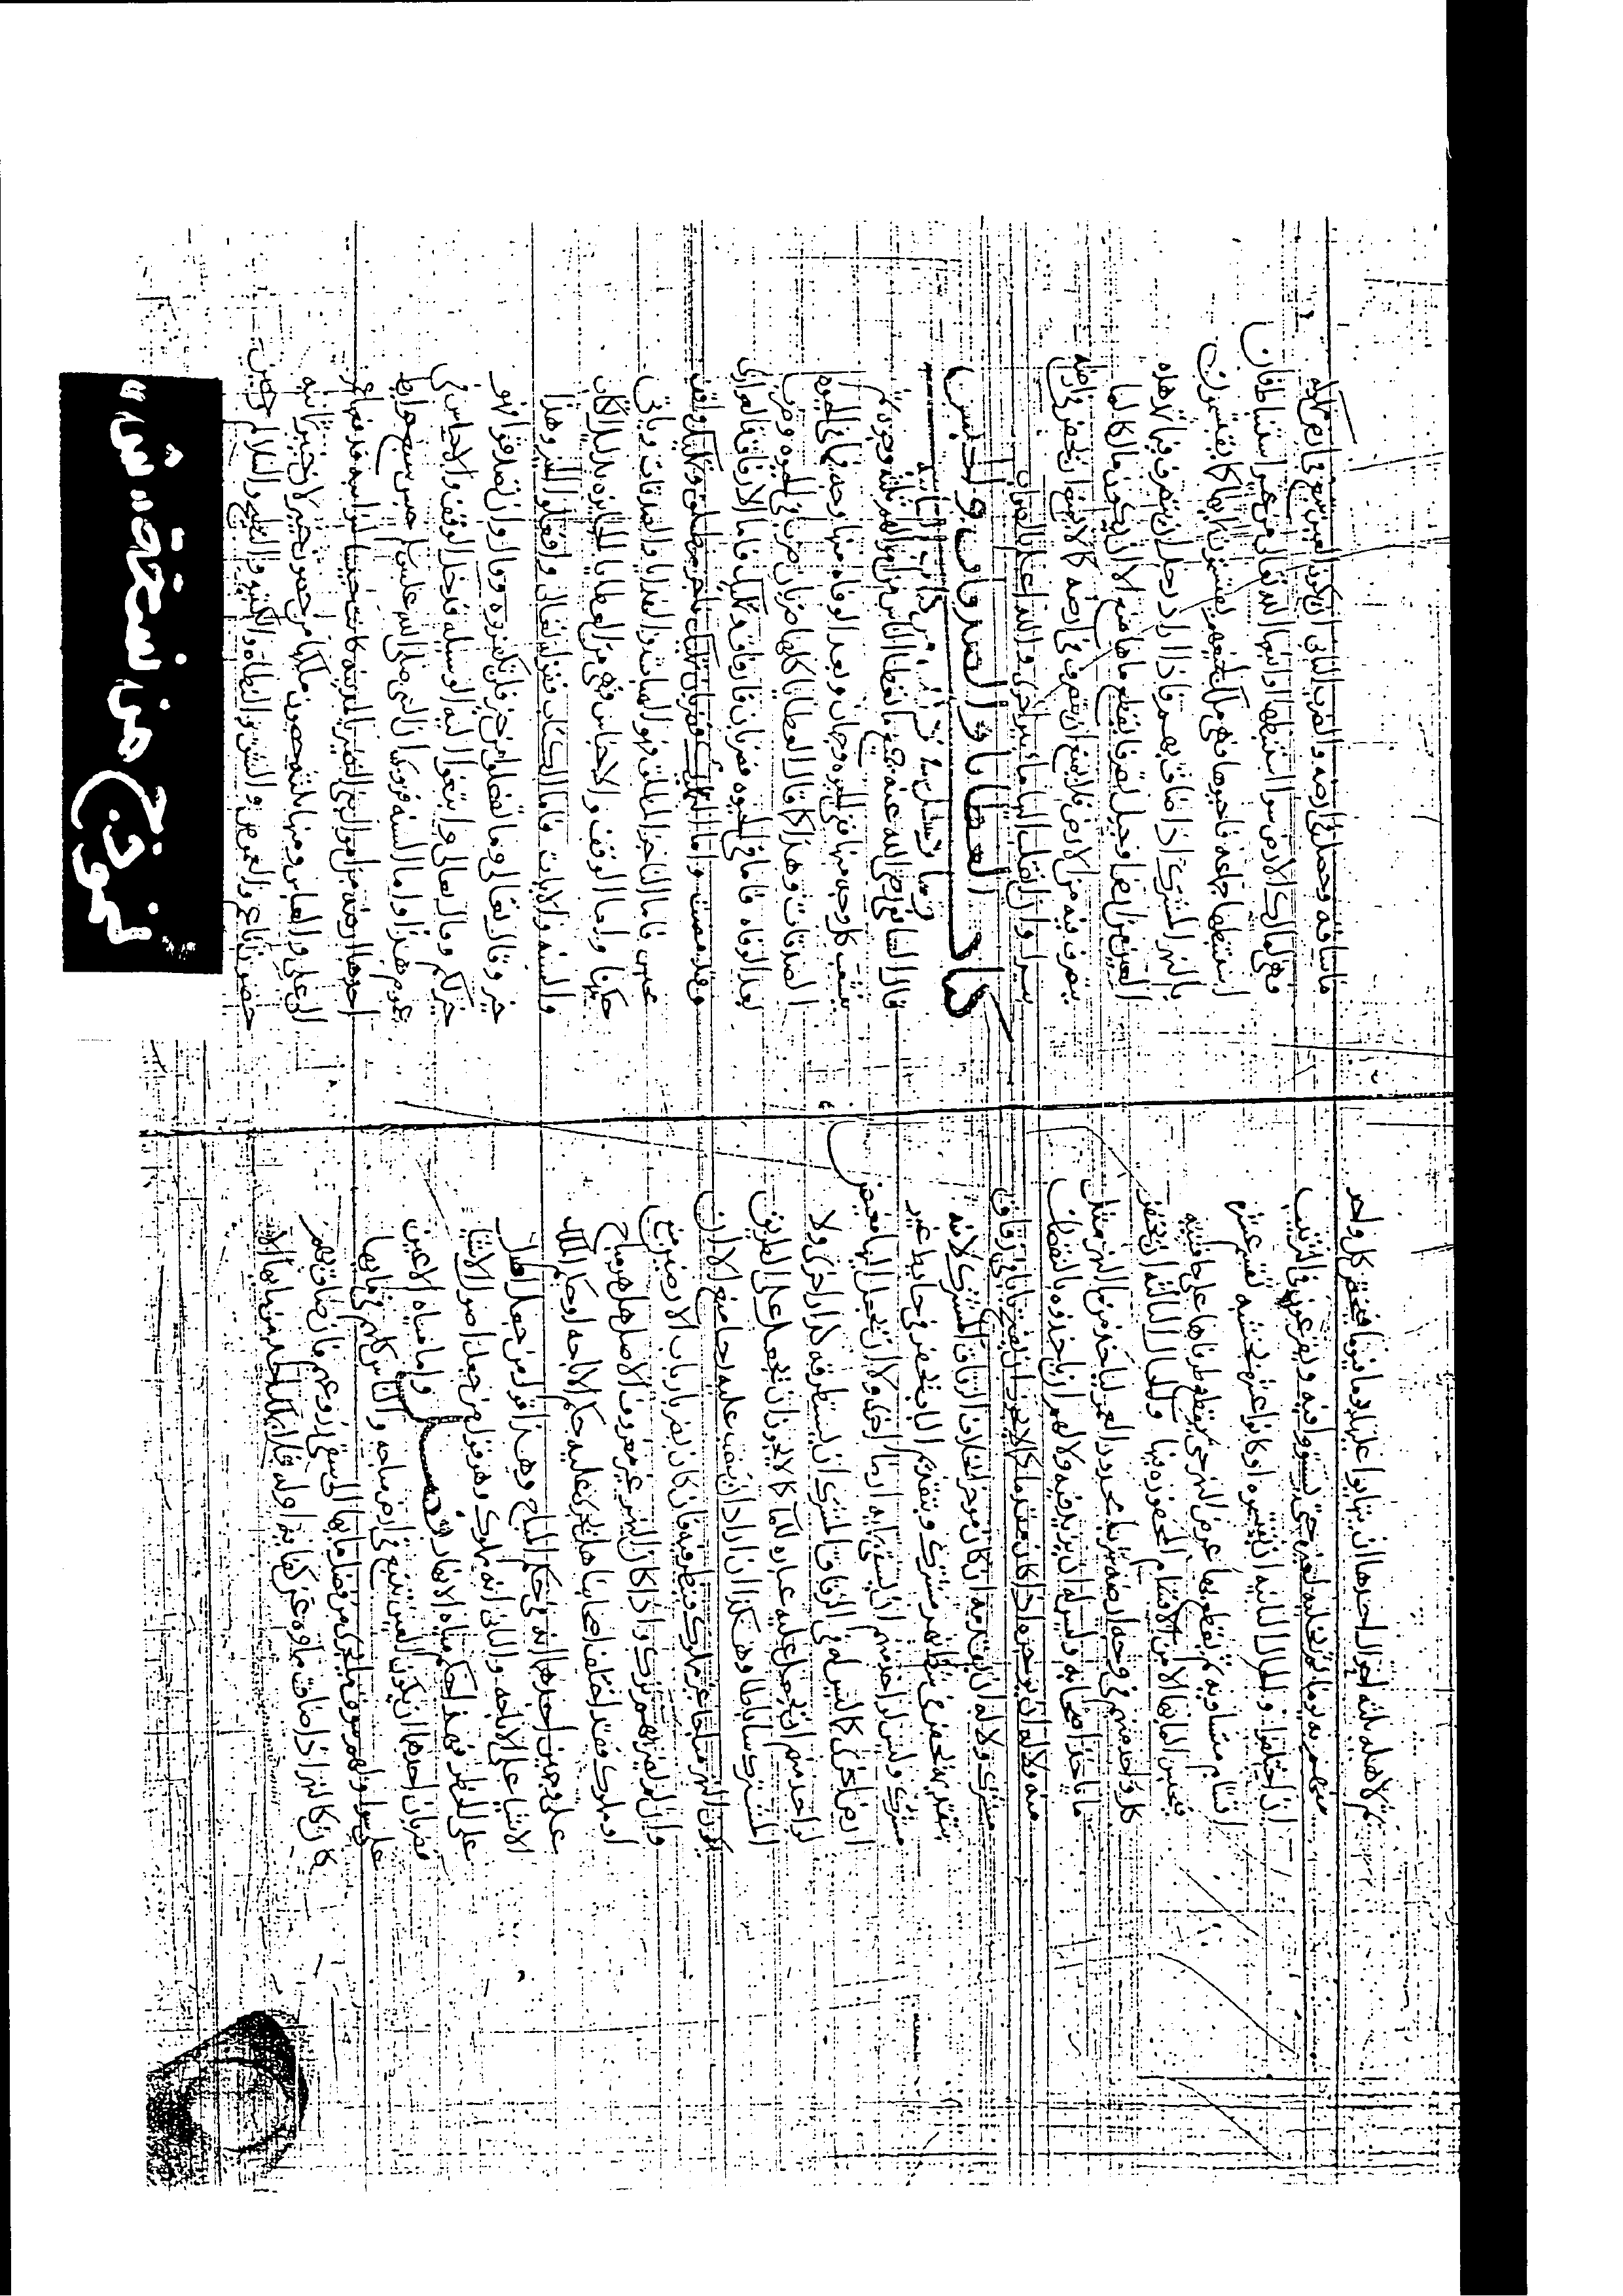 ثم لاهله ثلثة احوال احدها ان يتناوبوا عليه يوما فيوما فيختص كل واحد
منهم به يوما حتى يستووا فيه ويقترعون في الترتيب
ان اختلفوا والحال الثانية ان يقتسموه اذ كانوا عشرة بخشبة تقسم عشرة
اقسام متساوية ثم يقطع بها عرض النهر حتى طرفاها على حافتيه
الا من الاقسام المحفورة فيها والحال الثالثة ان يحفر
كل واحد منهم في وجه ارضه شربا العمق لياخذ من ماء النهر مثل
ما ياخذ اصحابه وليس له ان يزيد فيه ولا لهم ان ياخذوه بالنقصان
منه ولا له ان يؤخره اذا كان مقدما كما لا يجوز ان يفتح بابا في زقاق
مشترك ولا له ان يقدمه ان كان موخرا بخلاف الزقاق المشترك لانه
بتقدمه يحفر في شط نهر مشترك ويتقدم الباب يحفر في حايط غير
مشترك وليس لواحد منهم ان يسقي بمايه ارضا اخرى ولا ان يجعل اليها مفيض
ارض اخرى كما ليس له في الزقاق المشترك ان يستطرقه لدار اخرى ولا
لواحد منهم ان يجعل عليه عباره للماء كما لا يجوز ان يجعل على الطريق
المشترك ساباطا وهكذا ان اراد ان ينصب عليه رحا منع الا ان
يكون النهر مباحا غير مملوك فينظر فيه فان كان يضر بارباب الارضين منع
وان لم يضر بهم ترك واذا كان النهر غير معروف الاصل هل هو مباح
او مملوك فقد اختلف اصحابنا هل يجري عليه حكم الاباحه او حكم الملك
على وجهين احدهما انه في حكم المباح وهذا قول من جعل اصل
الاشياء على الاباحه والثاني انه مملوك وهو قول من جعل اصول الاشيا
على الحظر فهذا حكم مياه الانهار فصل واما مياه الاعين
فضربان احدهما ان يكون العين تنبع في ارض مباحه والناس كلهم في مايها
على سوا ولهم سوق ما يجري من فضل مايها الى سقي زروعهم فان ضاق بهم
كان كالنهر اذا ضاق ماوه عن كفاية
ماساقه وحصل في ارضه والضرب الثاني ان يكون العين تنبع في ارض مملوكه
فهي لمالك الارض سوا استنبطها او انبعها الله تعالى من غير استنباط فان
استنبطها جماعه فاحيوها فهي ملك لجميعهم يقتسمون ماها كما يقتسمون
ما النهر المشترك اذا ضاق بهم فاذا اراد رجل ان يتصرف في ما هذه
العين من ارضها وحمل تصرفا يقطع ماها منع الا ان يكون مالكا لما
يتصرف فيه من الارض فلا يمنع ان يتصرف في ارضه كما لا يمنع ان يحفر في ارضه
بيرا وان انتقلت اليها ما بير اخرى والله اعلم بالصواب
كتاب العطايا والصدقات والحبس
قال الشافعي رضي الله عنه يجمع ما يعطا الناس من اموالهم ثلثة وجوه ثم
يتشعب كل وجه منها ففي الحيوة وجهان وبعد الوفاه منها وجه فما في الحيوة
الصدقات وهذا كما قال العطايا كلها ضربان ضرب في الحيوة وضرب
بعد الوفاه فاما في الحيوة فضربان فارفاق وتمليك فاما الارفاق فالعواري
وقد مضت واما التمليك فضربان تمليك ناجز مطلق وتمليك واقف
محبس فاما الناجز المطلق فهو الهبات والهدايا والصدقات وياتي
حكمها واما الوقف والاحباس فهي من العطايا الجايزه بدليل الكتاب
والسنه والاثبات فاما الكتاب فقوله تعالى وافعلوا الخير وهذا
خير وقال تعالى وما تفعلوا من خير فلن تكفروه وقال وان تصدقوا فهو
خير لكم وقال تعالى وابتغوا اليه الوسيله فدخل الوقف والاحباس في
عموم هذا واما السنه فروي ان النبي صلى الله عليه وسلم حبس سبع حوايط
احدها ارضه من اموال بني النضير بالمدينه كانت حبسا لنوايبه فدفعها
الى علي والعباس ومنها ثلثه حصون ملكها من حصون خيبر لان خيبر ثمانيه
حصون ناعم والقموص وشق والنطاة والكتيبه والوطيح والسلالم وحصن
نموذج من نسخة "س"